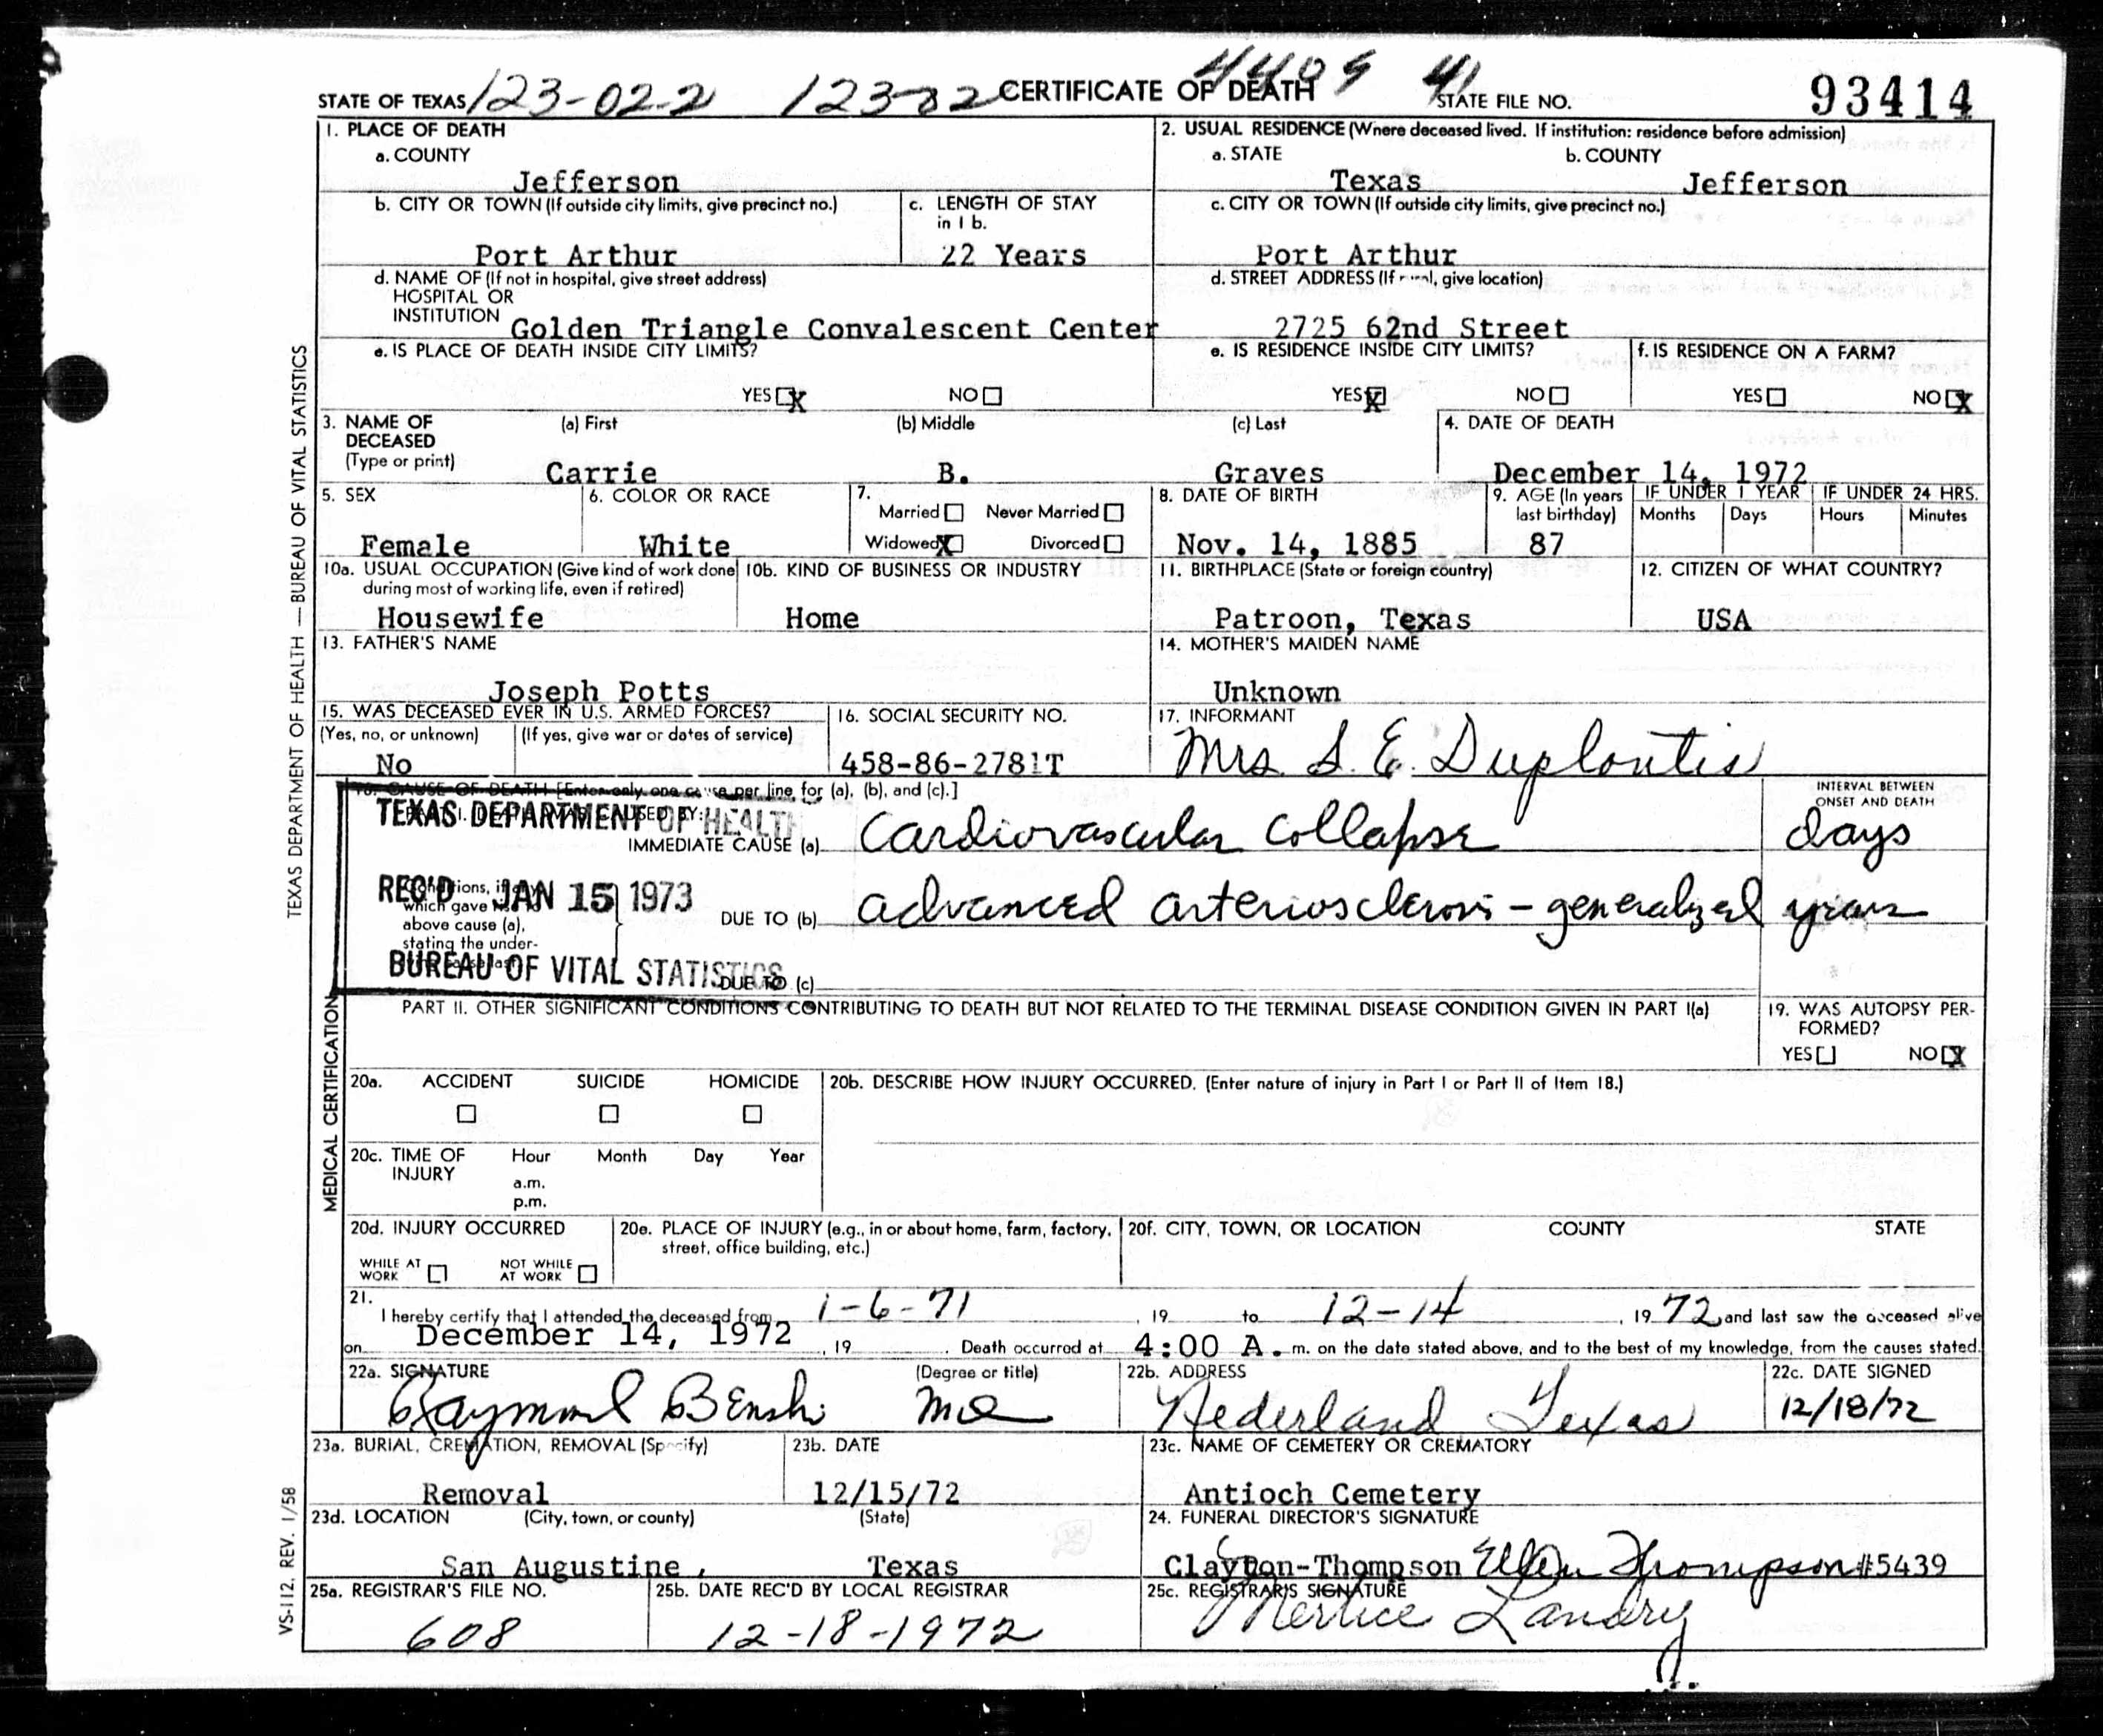 STATE OF TEXAS 123-02-2 123-02 CERTIFICATE OF DEATH 4409 41 STATE FILE NO. 93414
1. PLACE OF DEATH
a. COUNTY
Jefferson
2. USUAL RESIDENCE (Where deceased lived. If institution: residence before admission)
a. STATE b. COUNTY
Texas Jefferson
b. CITY OR TOWN (If outside city limits, give precinct no.)
Port Arthur
c. LENGTH OF STAY
in 1 b.
22 Years
c. CITY OR TOWN (If outside city limits, give precinct no.)
Port Arthur
d. NAME OF (If not in hospital, give street address)
HOSPITAL OR
INSTITUTION Golden Triangle Convalescent Center
d. STREET ADDRESS (If rural, give location)
2725 62nd Street
e. IS PLACE OF DEATH INSIDE CITY LIMITS?
YES X NO
e. IS RESIDENCE INSIDE CITY LIMITS?
YES X NO
f. IS RESIDENCE ON A FARM?
YES NO X
3. NAME OF
DECEASED
(Type or print)
(a) First (b) Middle (c) Last
Carrie B. Graves
4. DATE OF DEATH
December 14, 1972
5. SEX
Female
6. COLOR OR RACE
White
7.
Married Never Married
Widowed X Divorced
8. DATE OF BIRTH
Nov. 14, 1885
9. AGE (In years
last birthday)
87
IF UNDER 1 YEAR
Months Days
IF UNDER 24 HRS.
Hours Minutes
10a. USUAL OCCUPATION (Give kind of work done
during most of working life, even if retired)
Housewife
10b. KIND OF BUSINESS OR INDUSTRY
Home
11. BIRTHPLACE (State or foreign country)
Patroon, Texas
12. CITIZEN OF WHAT COUNTRY?
USA
13. FATHER'S NAME
Joseph Potts
14. MOTHER'S MAIDEN NAME
Unknown
15. WAS DECEASED EVER IN U.S. ARMED FORCES?
(Yes, no, or unknown) (If yes, give war or dates of service)
No
16. SOCIAL SECURITY NO.
458-86-2781T
17. INFORMANT
Mrs. S. E. Duplantis
18. CAUSE OF DEATH [Enter only one cause per line for (a), (b), and (c).]
INTERVAL BETWEEN
ONSET AND DEATH
TEXAS DEPARTMENT OF HEALTH
REC'D JAN 15 1973
BUREAU OF VITAL STATISTICS
IMMEDIATE CAUSE (a) Cardiovascular collapse days
Conditions, if any
which gave rise to
above cause (a),
stating the under-
DUE TO (b) advanced arteriosclerosis - generalized years
DUE TO (c)
PART II. OTHER SIGNIFICANT CONDITIONS CONTRIBUTING TO DEATH BUT NOT RELATED TO THE TERMINAL DISEASE CONDITION GIVEN IN PART I(a)
19. WAS AUTOPSY PER-
FORMED?
YES NO X
20a. ACCIDENT SUICIDE HOMICIDE
20b. DESCRIBE HOW INJURY OCCURRED. (Enter nature of injury in Part I or Part II of Item 18.)
20c. TIME OF
INJURY
Hour Month Day Year
a.m.
p.m.
20d. INJURY OCCURRED
WHILE AT
WORK
NOT WHILE
AT WORK
20e. PLACE OF INJURY (e.g., in or about home, farm, factory,
street, office building, etc.)
20f. CITY, TOWN, OR LOCATION COUNTY STATE
21.
I hereby certify that I attended the deceased from 1-6-71, 19 to 12-14, 1972, and last saw the deceased alive
on December 14, 1972, 19 . Death occurred at 4:00 A. m. on the date stated above, and to the best of my knowledge, from the causes stated.
22a. SIGNATURE (Degree or title)
Raymond MD
22b. ADDRESS
Nederland Texas
22c. DATE SIGNED
12/18/72
23a. BURIAL, CREMATION, REMOVAL (Specify)
Removal
23b. DATE
12/15/72
23c. NAME OF CEMETERY OR CREMATORY
Antioch Cemetery
23d. LOCATION (City, town, or county) (State)
San Augustine, Texas
24. FUNERAL DIRECTOR'S SIGNATURE
Clayton-Thompson Ellen Thompson #5439
25a. REGISTRAR'S FILE NO.
608
25b. DATE REC'D BY LOCAL REGISTRAR
12-18-1972
25c. REGISTRAR'S SIGNATURE
Landry
TEXAS DEPARTMENT OF HEALTH — BUREAU OF VITAL STATISTICS
MEDICAL CERTIFICATION
VS-112, REV. 1/58